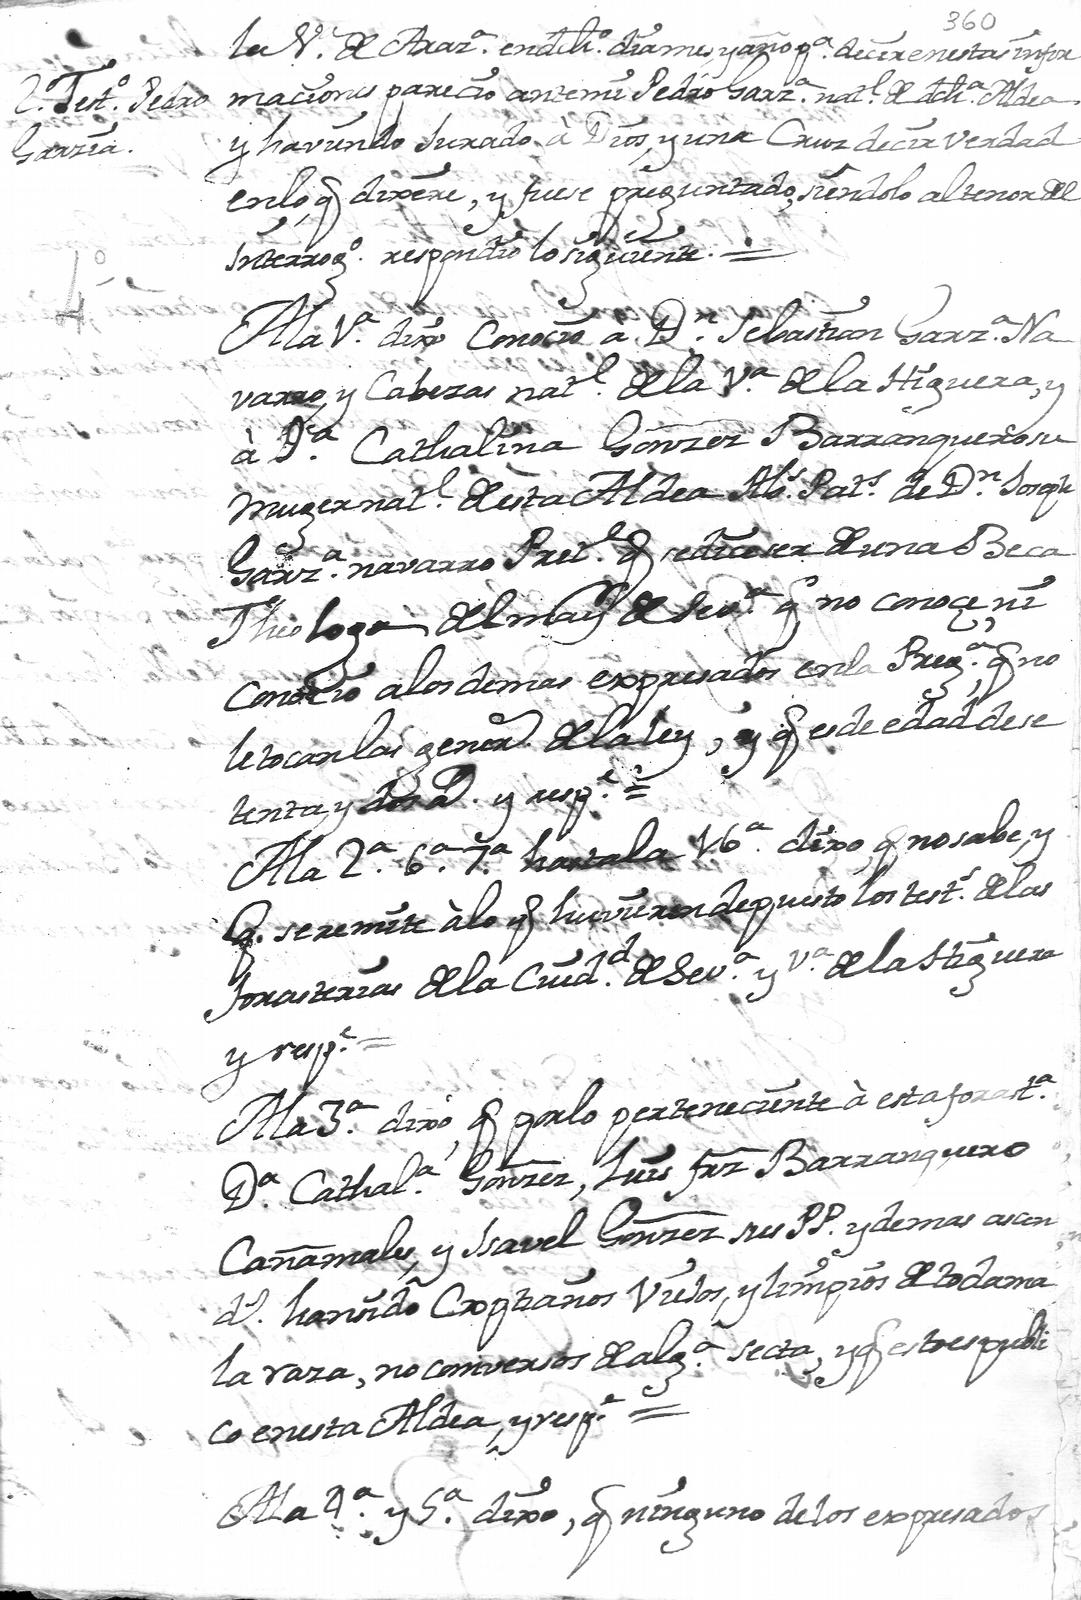 360
la V.ª de Araz.ª en dch.º dia mes, y año p.ª decir en estas infor
2.º Test.º Pedro
Garzia.
maciones parecio ante mi Pedro Garz.ª nat.l de dch.ª Aldea,
y haviendo Jurado à Dios, y una Cruz decir verdad
en lo q dixere, y fuese preguntado, siendolo al tenor del
Interrog.º respondio lo siguiente. =
4º
A la 1.ª dixo Conocio à D.n Sebastian Garz.ª Na
varro, y Cabezas nat.l de la V.ª de la Higuera, y
à D.ª Cathalina Gonzez Barranquero su
muger nat.l de esta Aldea Ab.s Pat.s de D.n Joseph
Garz.ª navarro Pret.e q se dice ser de una Beca
Theologa del may.r de Sev.ª q no conoce, ni
conocio a los demas expresados en la Preg.ª, q no
le tocan las gener.s de la ley, y q es de edad de se
tenta, y dos a.s y resp.e =
A la 2.ª 6.ª 7.ª hasta la 16.ª dixo, q no sabe, y
q. se remite à lo q huvieren depuesto los test.s de las
forasterias de la Ciud.d de Sev.ª y V.ª de la Higuera
y resp.e =
A la 3.ª dixo, q por lo perteneciente à esta forast.ª
D.ª Cathal.ª Gonzez, Luis frz Barranquero
Cañamales, y Isavel Gonzez sus PP. y demas ascen
d.s han sido Cxptianos Viejos, y limpios de toda ma
la raza, no conversos de alg.ª secta, y q esto es publi
co en esta Aldea, y resp.e =
A la 4.ª y 5.ª dixo, q ninguno de los expresados